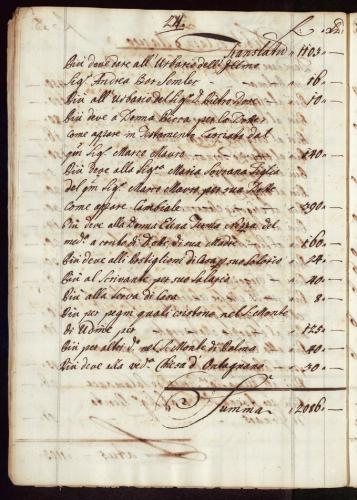 L: S:
Translatio 1103
Più deve dare all' Urbario dell' Illmo
Sigr Andrea 16
Più all' Urbario del Sigr Pietro 10
Più deve a Donna per la Dotte
Come appare in Testamento dal
qm Sigr Marco Mauro 140
Più deve alla Sigra Maria figlia
del qm Sigr Marco Mauro per sua Dotte
Come appare Cambiale 290
Più deve alla Donna Elena del
med.o a conto di Debi di sua Madre 160
Più deve alli di Casa per suo salario 24
Più al Scrivante per suo Salario 40
Più alla serva di Casa 8
Più per pegni quali esistono nel S. Monte
di Udine per 125
Più per altri d.i nel S. Monte di Palma 40
Più deve alla ved.a Chiesa d' Ontagnano 50
Summa 2086